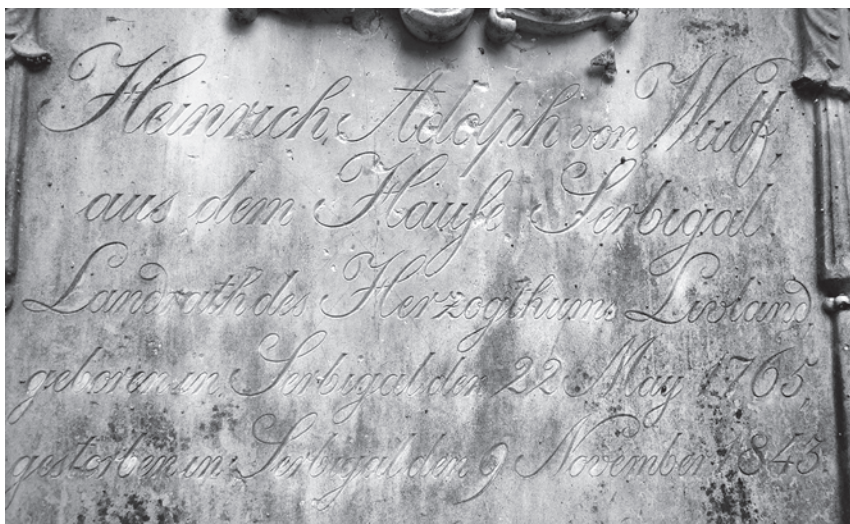 Heinrich Adolph von Wulf,
aus dem Hauſe Serbigal
Landrath des Herzogthums Livland,
geboren in Serbigal den 22 May 1765,
gestorben in Serbigal den 9 November 1843.